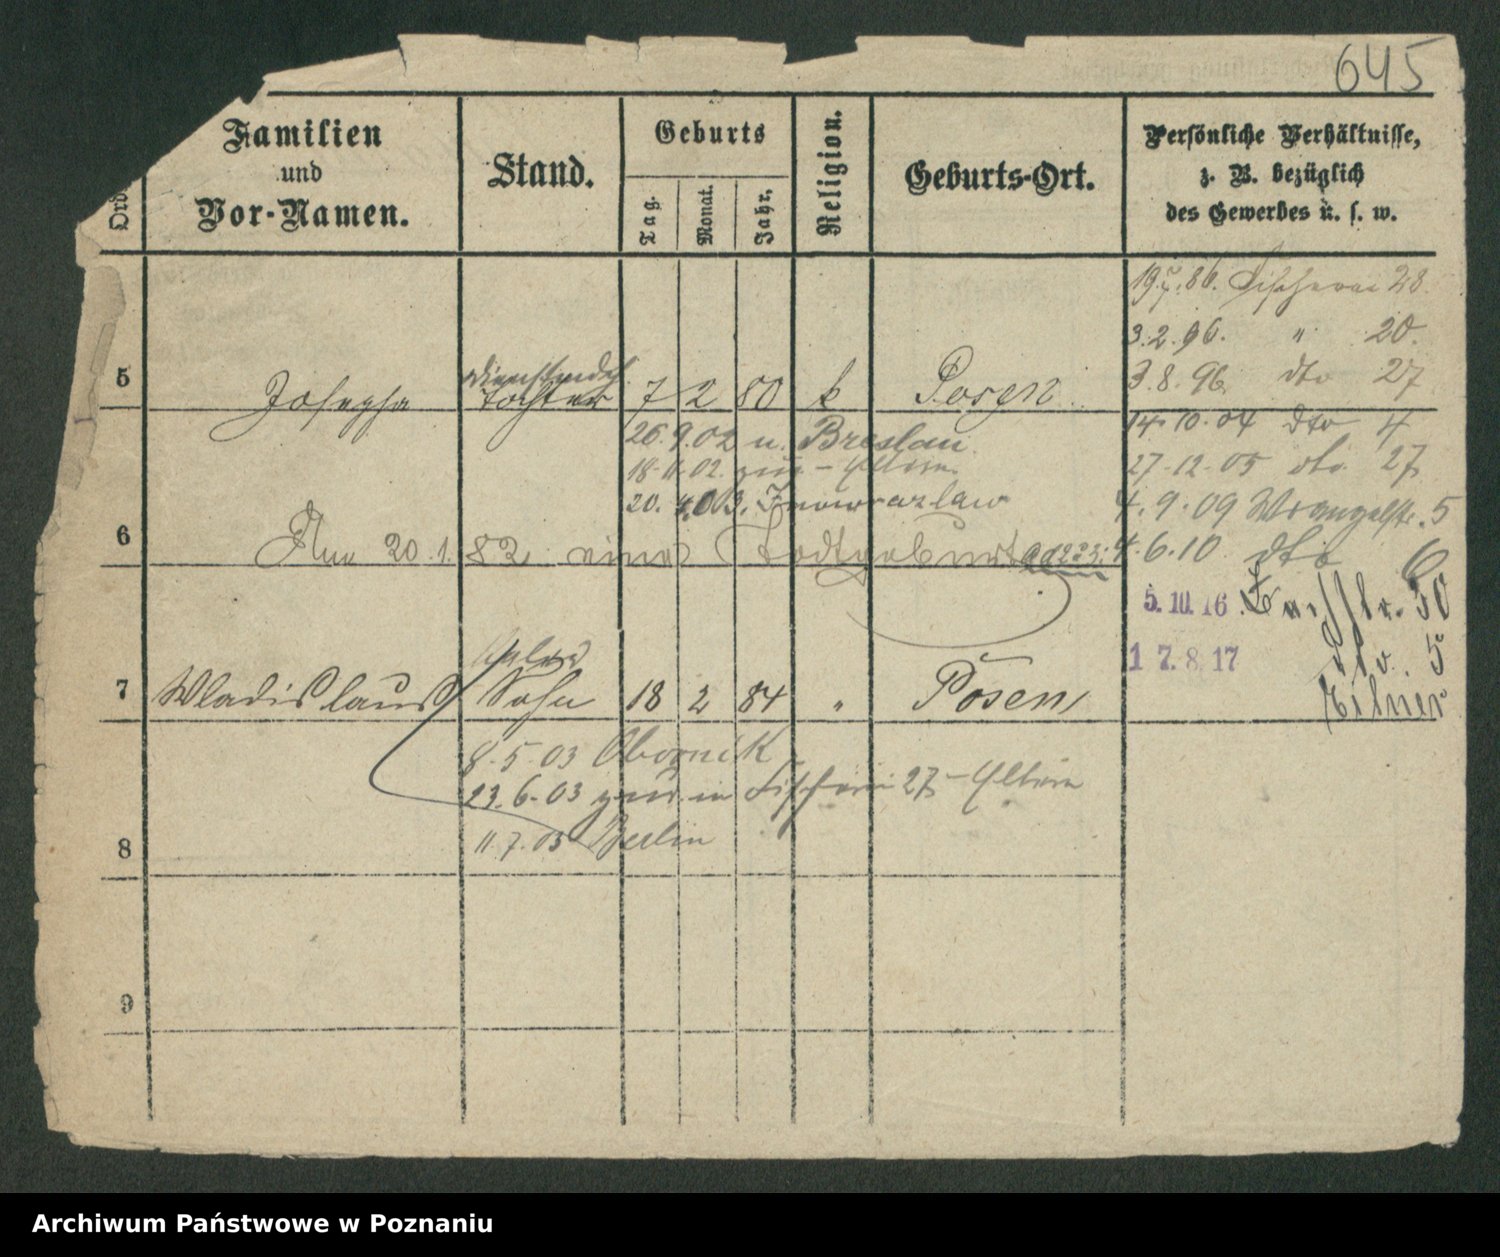 645
Ord
Familien
und
Vor-Namen.
Stand.
Geburts
Tag.
Monat.
Jahr.
Religion.
Geburts-Ort.
Persönliche Verhältnisse,
z. B. bezüglich
des Gewerbes u. s. w.
19.7.86. Fischerei 28.
3.2.96. " 20.
3.8.96. dto 27
5 Josepha Tochter 7 2 80 k Posen
14.10.04 dto 4
26.9.02 n. Breslau
27.12.05 dto 27
18.11.02. zur. - Eltern
20. 4.03. Inowrazlaw
4.9.09 Wrangelstr. 5
6 Am 20.1. 82 eine Todtgeburt
4.6.10 dto 6
5.10.16 30
1 7.8.17 dto. 5
7 Wladislaus Sohn 18 2 84 " Posen
8.5.03 Obornik
23.6.03 zur. in Fischerei 27 - Eltern
11.7.03 Berlin
8
9
Archiwum Państwowe w Poznaniu